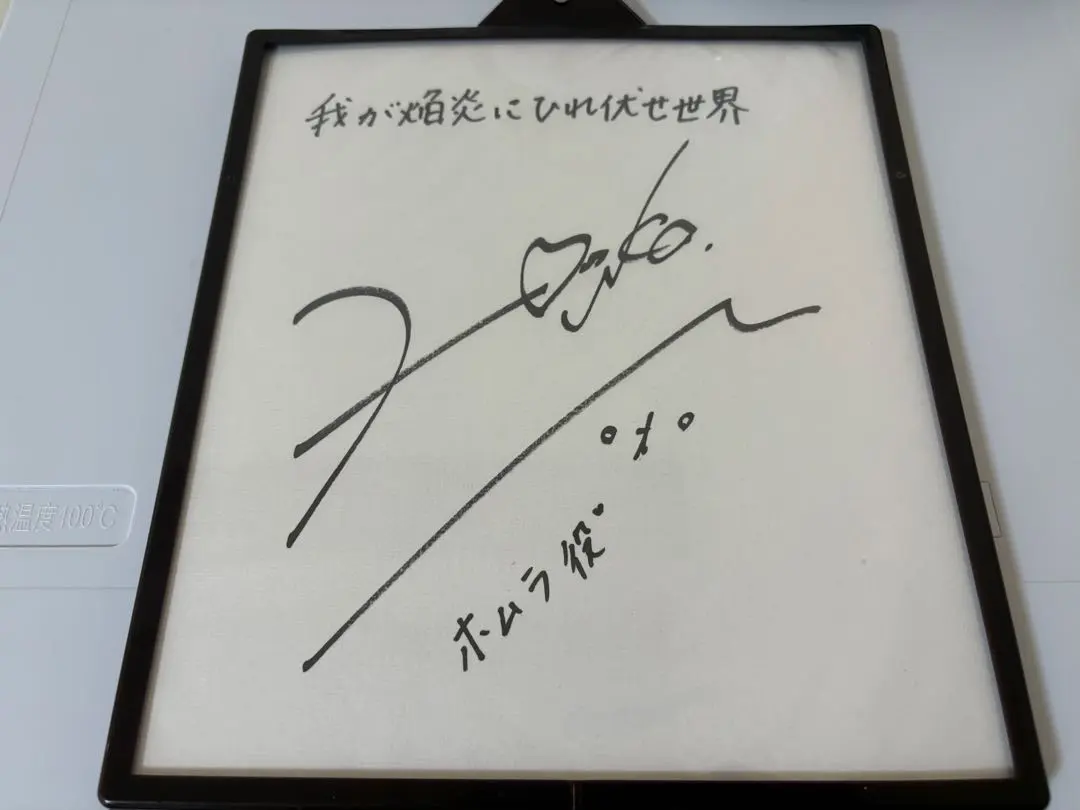 我が焔炎にひれ伏せ世界
ホムラ役。
熱温度100℃